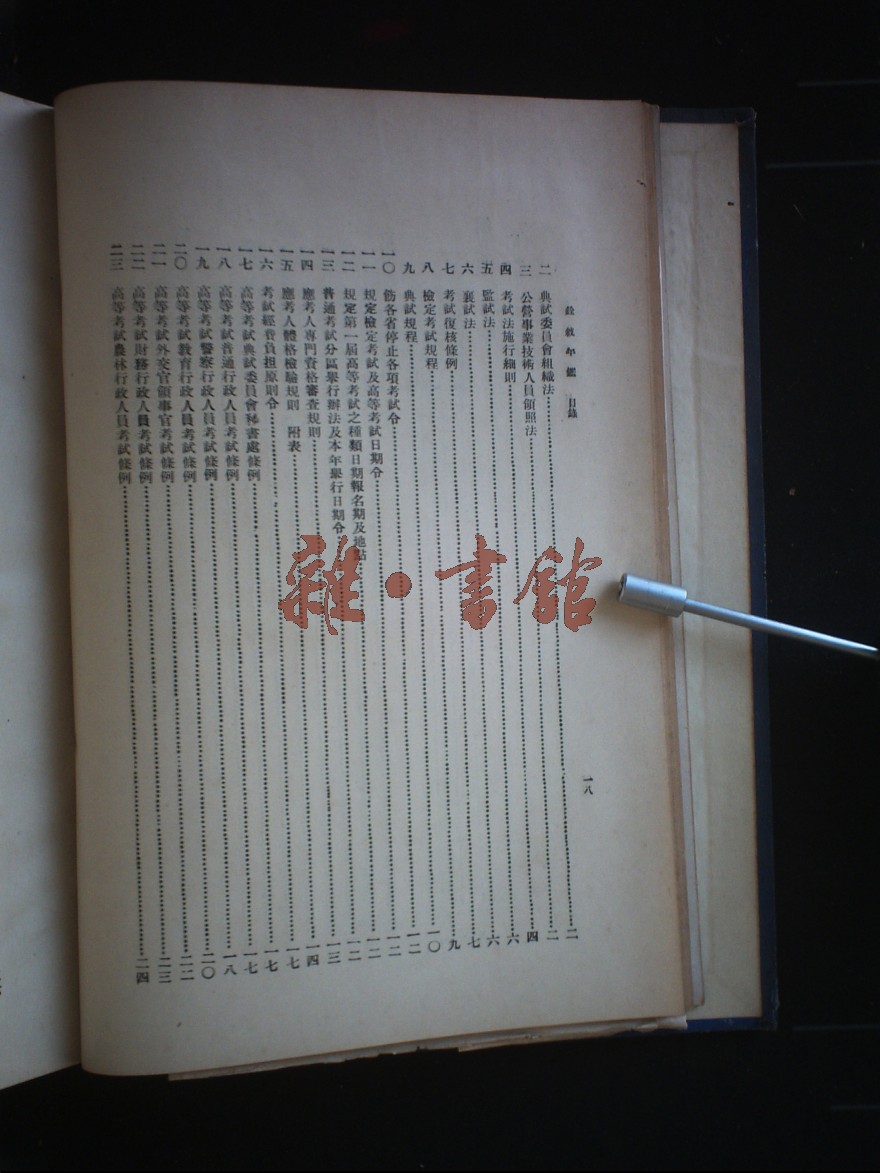 銓敍年鑑 目錄 一八
二 典試委員會組織法……二
三 公營事業技術人員領照法……二
四 考試法施行細則……四
五 監試法……六
六 襄試法……六
七 考試復核條例……七
八 檢定考試規程……九
九 典試規程……一〇
一〇 飭各省停止各項考試令……一二
一一 規定檢定考試及高等考試日期令……一二
一二 規定第一屆高等考試之種類日期報名期及地點……一二
一三 普通考試分區舉行辦法及本年舉行日期令……一二
一四 應考人專門資格審查規則……一三
一五 應考人體格檢驗規則 附表……一四
一六 考試經費負担原則令……一七
一七 高等考試典試委員會秘書處條例……一七
一八 高等考試普通行政人員考試條例……一七
一九 高等考試警察行政人員考試條例……一八
二〇 高等考試教育行政人員考試條例……二〇
二一 高等考試外交官領事官考試條例……二二
二二 高等考試財務行政人員考試條例……二三
二三 高等考試農林行政人員考試條例……二四
雜·書館